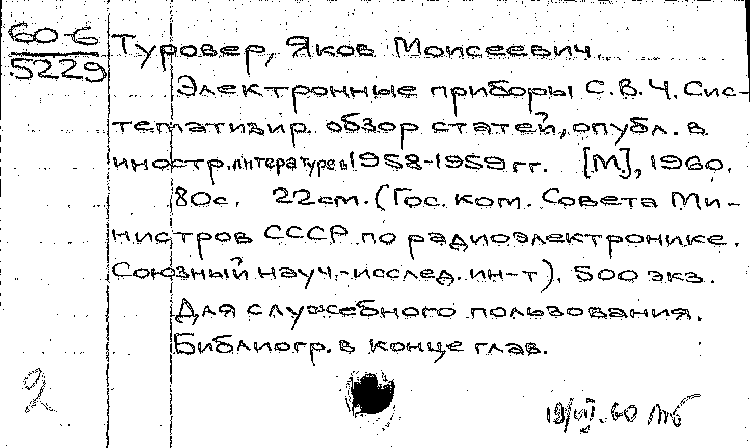 60-6
5229
Туровер, Яков Моисеевич.
Электронные приборы С.В.Ч. Сис-
тематизир. обзор статей, опубл. в
иностр. литературе в 1958-1959 гг. [М.], 1960.
80с. 22cm. (Гос. ком. Совета Ми-
нистров СССР по радиоэлектронике.
Союзный науч.-исслед. ин-т). 500 экз.
Для служебного пользования.
Библиогр. в конце глав.
2
19/VII.60